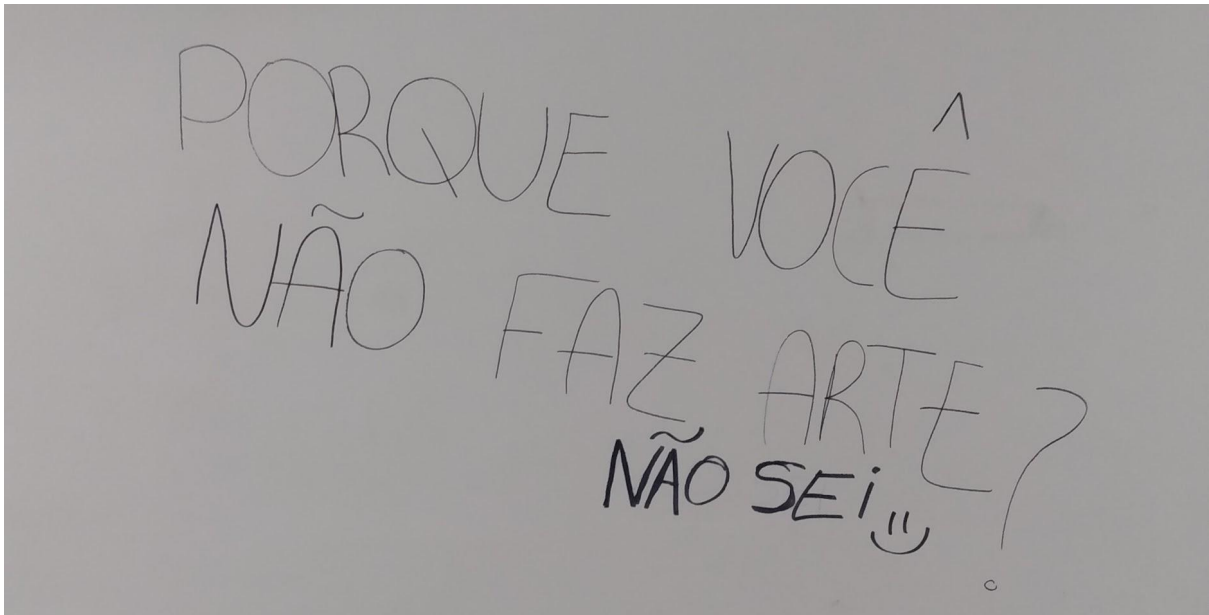 PORQUE VOCÊ
NÃO FAZ ARTE?
NÃO SEi